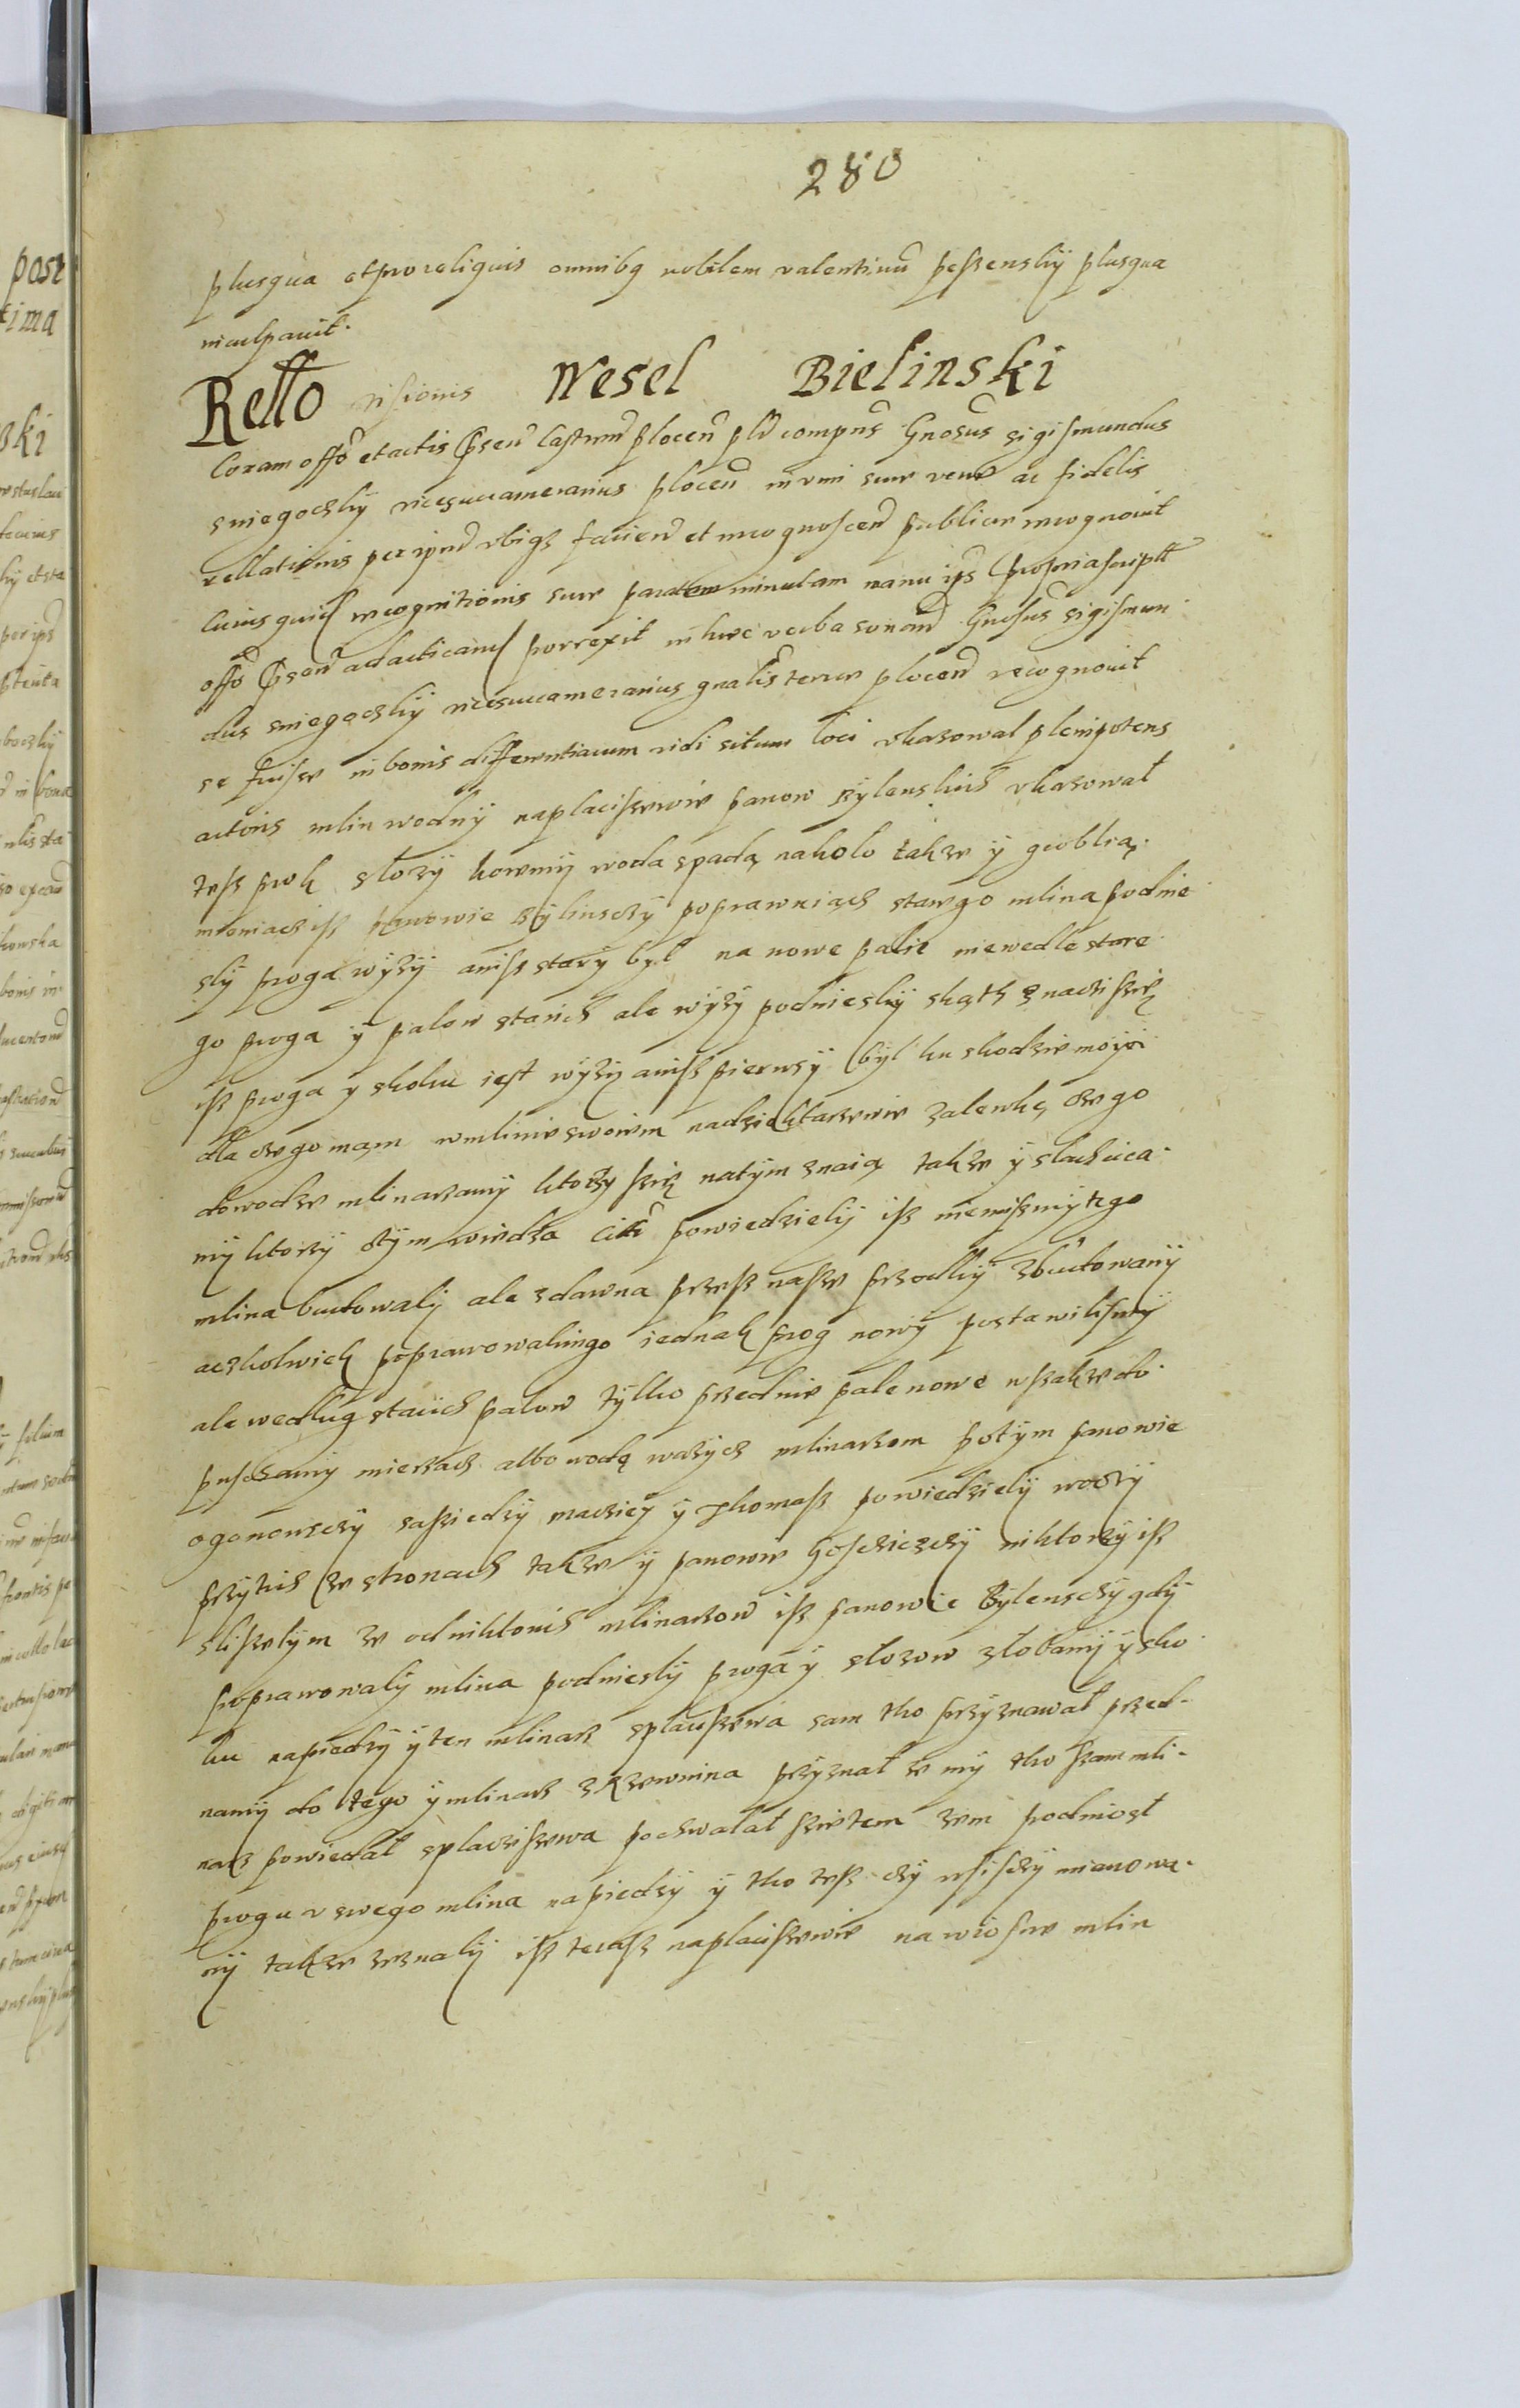 280
plusqua et pro reliquis omnibq nobilem valentinū peßenskÿ plusqua
inculpauit.
Rello visionis Wesel Bielinski
Coram offō et actis pseñ Castreñ ploceñ pln̄r compns̄ Gnosus sigismundus
sniegoczkÿ vicesuccamerarius ploceñ in vim suae verae ac fidelis
rellationis per ipm̄ vbiqȝ facien̄ et recognoscen̄ publice recognouit
Cuiusquid recognitionis suae paratam minutam manu ips propria script
offō pseñ ad acticand porrexit in haec verba sonan̄ Gnosus sigismun
dus sniegoczkÿ vicesuccamerarius gnalis terrae ploceñ recognouit
se fuisse in bonis differentiarum vidi situm loci vkazowal plenipotens
actoris mlin wodnÿ na placiszewie panow Bÿlenskich vkazował
tesz prok słozÿ ktoremÿ woda spada na koło takze ÿ groblią.
mieniacz isz panowie Bÿlinsczÿ poprawuiącz starego mlina podnie
slÿ proga wÿzÿ anisz starÿ był na nowe palie niewedle stare
go proga ÿ palow starich ale wÿzÿ podnieslÿ skąth znaczi szię
isz proga y skoku iest wÿzÿ anisz pierwsÿ bÿł ku skodzie moÿei
dla czego mąm w mlinie swoiem nadziektarzewie zalewkę czego
dowodze mlinarzamÿ ktorzÿ szię natÿm znaią takze ÿ slachcica
mÿ ktorzÿ otÿm wiedza Citti powiedzielÿ isz niemÿsmÿ tego
mlina budowalÿ ale zdawna przesz nasze przodkÿ zbudowanÿ
aczkolwiek poprawowalismÿgo iednak prog nowÿ postawilismÿ
ale wedlug starich palow tÿlko przednie pale nowe wszakze do
puszczamÿ mierzacz albo wodę wazÿcz mlinarzom potÿm panowie
ogonowsczÿ sasziedzÿ macziei ÿ Thomasz powiedzielÿ wodzÿ
przÿtich ze stronach takze ÿ panowie Goscziczczÿ niktorzÿ isz
sliszelÿm ze odniktorich mlinarzow isz panowie Bÿlensczÿ gdÿ
poprawowalÿ mlina podnieslÿ proga ÿ słozow złobamÿ ÿ sko
ku napiedzÿ ÿ ten mlinarz splaciszewa sam tho przÿznawał przed
namÿ do tego ÿ mlinarz przÿznał ze mÿ tho szam mli
narz powiedał splacziszewa pochwalał szie tem zem podniosł
progu v swego mlina napiedzÿ ÿ tho tesz czÿ wsisczÿ mianowa
nÿ takze zeznalÿ isz terasz naplaciszewie na wiosne mlin